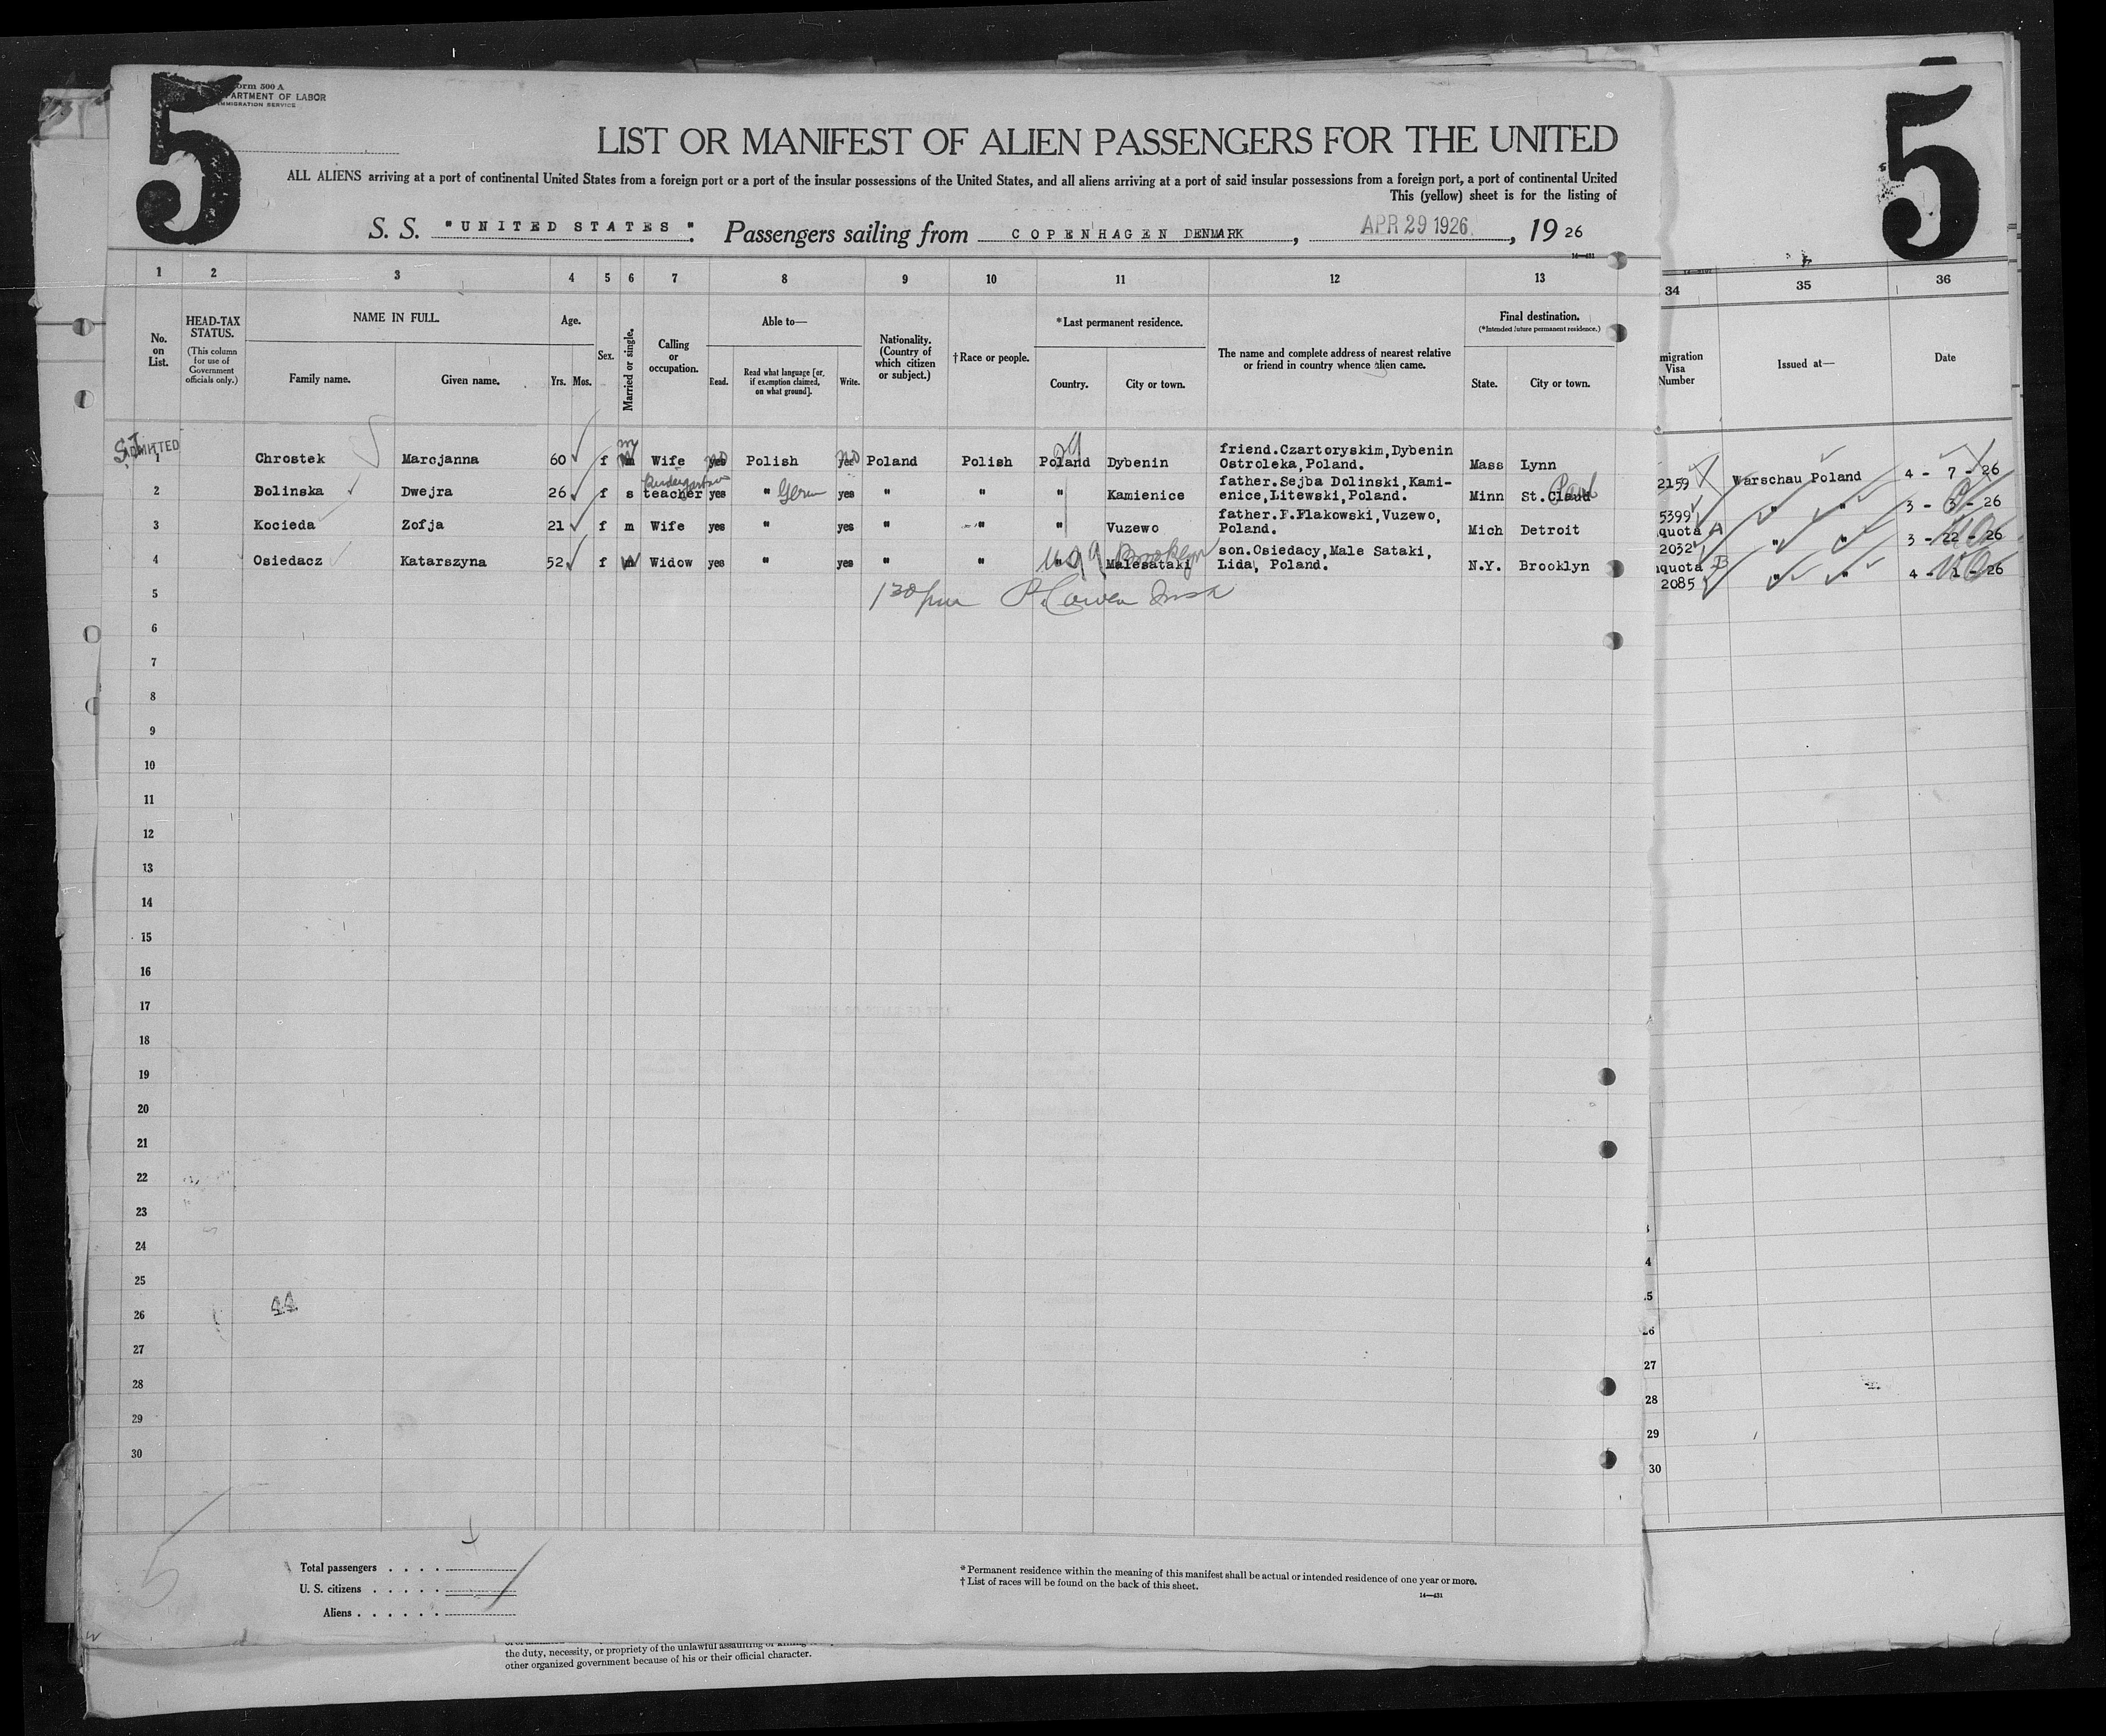 5
Form 500 A
DEPARTMENT OF LABOR
IMMIGRATION SERVICE
5
LIST OR MANIFEST OF ALIEN PASSENGERS FOR THE UNITED
ALL ALIENS arriving at a port of continental United States from a foreign port or a port of the insular possessions of the United States, and all aliens arriving at a port of said insular possessions from a foreign port, a port of continental United
This (yellow) sheet is for the listing of
S. S. "UNITED STATES". Passengers sailing from COPENHAGEN DENMARK, APR 29 1926, 1926
14—431
1 2 3 4 5 6 7 8 9 10 11 12 13 34 35 36
No. on List.
HEAD-TAX STATUS.
(This column for use of Government officials only.)
NAME IN FULL.
Family name. Given name.
Age.
Yrs. Mos.
Sex.
Married or single.
Calling or occupation.
Able to—
Read. Read what language [or, if exemption claimed, on what ground]. Write.
Nationality. (Country of which citizen or subject.)
†Race or people.
*Last permanent residence.
Country. City or town.
The name and complete address of nearest relative or friend in country whence alien came.
Final destination.
(*Intended future permanent residence.)
State. City or town.
migration Visa Number
Issued at—
Date
S.I. ADMITTED
1 Chrostek Marcjanna 60 f m m Wife yes no Polish yes no Poland Polish Poland Dybenin friend.Czartoryskim,Dybenin Ostroleka,Poland. Mass Lynn 2159 Warschau Poland 4 - 7 - 26
2 Dolinska Dwejra 26 f s Kindergarten teacher yes " Germ yes " " " Kamienice father.Sejba Dolinski,Kami-enice,Litewski,Poland. Minn St.Claud Paul 5399 " " 3 - 3 - 26
3 Kocieda Zofja 21 f m Wife yes " yes " " " Vuzewo father.F.Flakowski,Vuzewo, Poland. Mich Detroit quota A 2032 " " 3 - 22 - 26
4 Osiedacz Katarszyna 52 f m W Widow yes " yes " " " Malesataki Brooklyn son.Osiedacy,Male Sataki, Lida, Poland. N.Y. Brooklyn quota B 2085 " " 4 - 1 - 26
5 130 pm
6
7
8
9
10
11
12
13
14
15
16
17
18
19
20
21
22
23
24
25
26
27 27
28 28
29 29
30 30
Total passengers . . . .
U. S. citizens . . . . .
Aliens . . . . . .
5
*Permanent residence within the meaning of this manifest shall be actual or intended residence of one year or more.
†List of races will be found on the back of this sheet.
14—431
the duty, necessity, or propriety of the unlawful assaulting or killing
other organized government because of his or their official character.